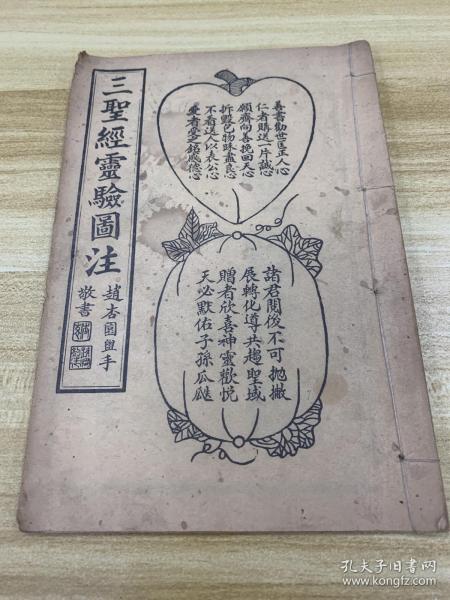 三聖經靈驗圖注
趙杏園盥手
敬書
善書勸世匡正人心
仁者購送一片誠心
願齋向善挽回天心
折毀包物昧盡良心
不看送人以表公心
愛者受之銘感德心
諸君閱後不可拋撇
展轉化導共趨聖域
贈者欣喜神靈歡悅
天必默佑子孫瓜瓞
孔夫子旧书网
www.kongfz.com